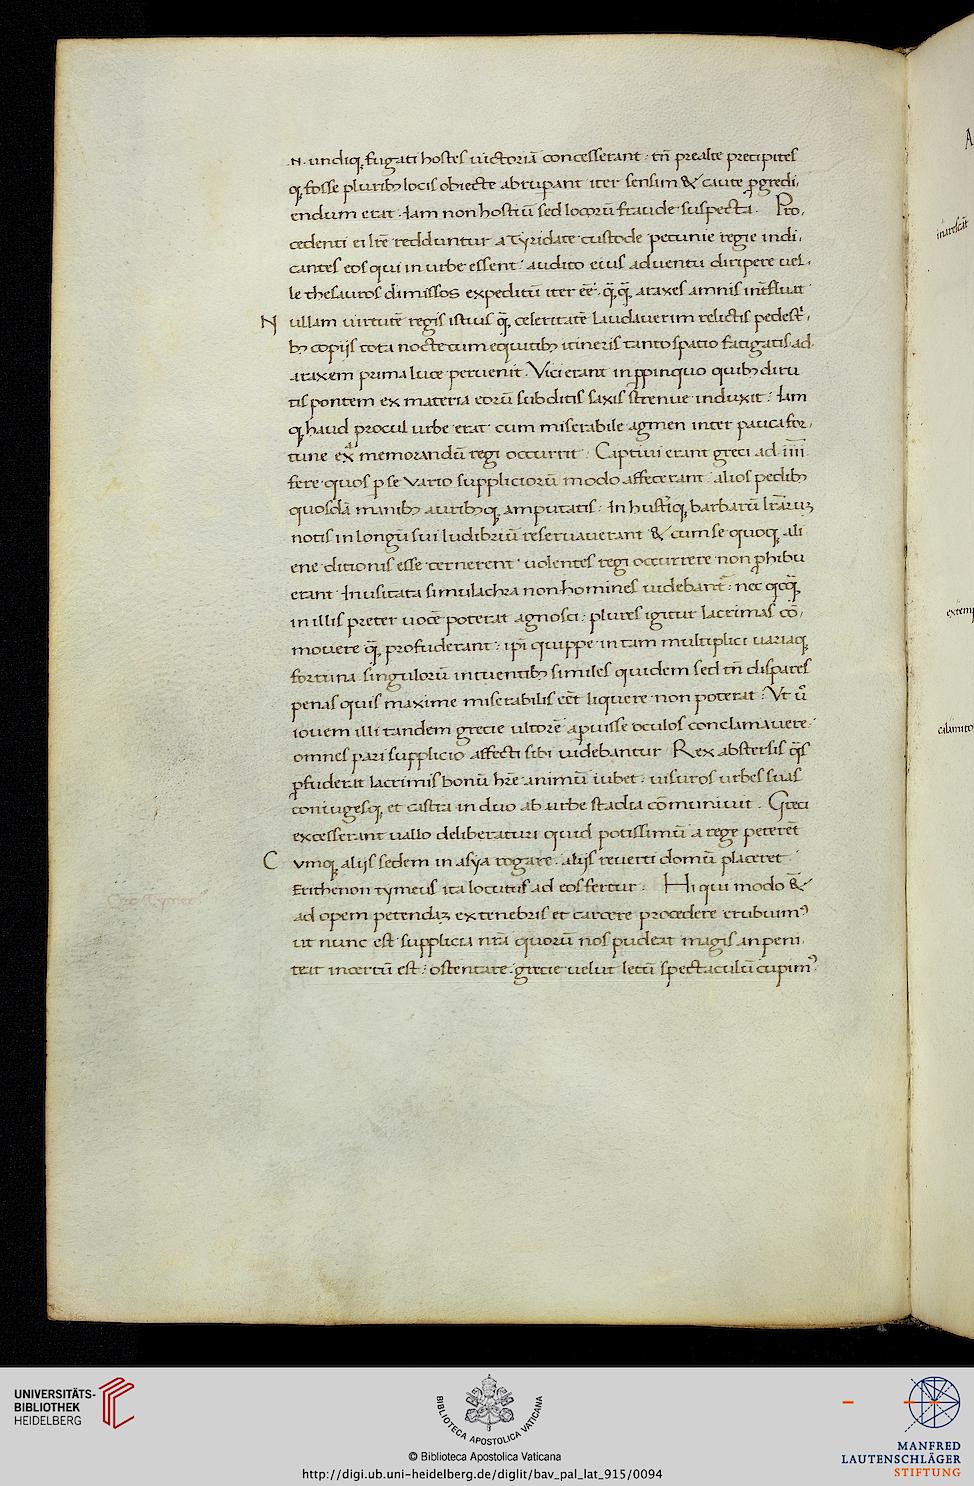 .N. undiq; fugati hostes uictoriā concesserant : tn̄ prealte precipites
q; fosse plurib; locis obiecte abrupant iter sensim & caute p̱gredi,
endum erat . Iam non hostiū sed locorū fraude suspecta . Pro,
cedenti ei lr̄e redduntur a Tyridate custode pecunie regie indi,
cantes eos qui in urbe essent : audito eius aduentu diripere uel,
le thesauros dimissos expeditū iter eē . q̄q̄ araxes amnis int̄fluat
Nullam uirtutē regis istius q̄ celeritatē laudauerim relictis pedest',
b; copijs tota nocte cum equitib; itineris tanto spatio fatigatis ad
araxem prima luce peruenit . Vici erant in p̱pinquo quib; diru
tis pontem ex materia eorū subditis saxis strenue induxit : Iam
q; haud procul urbe erat cum miserabile agmen inter pauca for,
tune exͣ memorandū regi occurrit . Captiui erant greci ad iiii
fere quos p̱se vario suppliciorū modo affecerant alios pedib;
quosdā manib; aurib;q; amputatis . In hustiq; barbarū lr̄arꝝ
notis in longū sui ludibriū reseruauerant & cum se quoq; ali
ene ditionis esse cernerent uolentes regi occurrere non p̱hibu
erant . Inusitata simulachra non homines uidebant' : nec qcq̄
in illis preter uocē poterat agnosci : plures igitur lacrimas cō,
mouere q̄ profuderant : ip̄i quippe in tam multiplici uariaq;
fortuna singulorū intuentib; similes quidem sed tn̄ dispares
penas quis maxime miserabilis eēt liquere non poterat : Vt ůo
iouem illi tandem grecie ultorē apuisse oculos conclamauere
omnes pari supplicio affecti sibi uidebantur Rex abstersis q̄s
p̱fuderit lacrimis bonū hr̄e animū iubet : uisuros urbes suas
coniugesq; et castra in duo ab urbe stadia cōmuniuit . Greci
excesserant uallo deliberaturi quid potissimū a rege peterēt
Cumq; alijs sedem in asya rogare . alijs reuerti domū placeret
Erithenon tymeus ita locutus ad eos fertur . Hi qui modo &
ad opem petendaꝫ ex tenebris et carcere procedere erubuim'
ut nunc est supplicia nr̄a quorū nos pudeat magis an peni
teat incertū est : ostentare grecie uelut letū spectaculū cupim'
UNIVERSITÄTS-
BIBLIOTHEK
HEIDELBERG
BIBLIOTECA APOSTOLICA VATICANA
© Biblioteca Apostolica Vaticana
http://digi.ub.uni-heidelberg.de/diglit/bav_pal_lat_915/0094
MANFRED
LAUTENSCHLÄGER
STIFTUNG